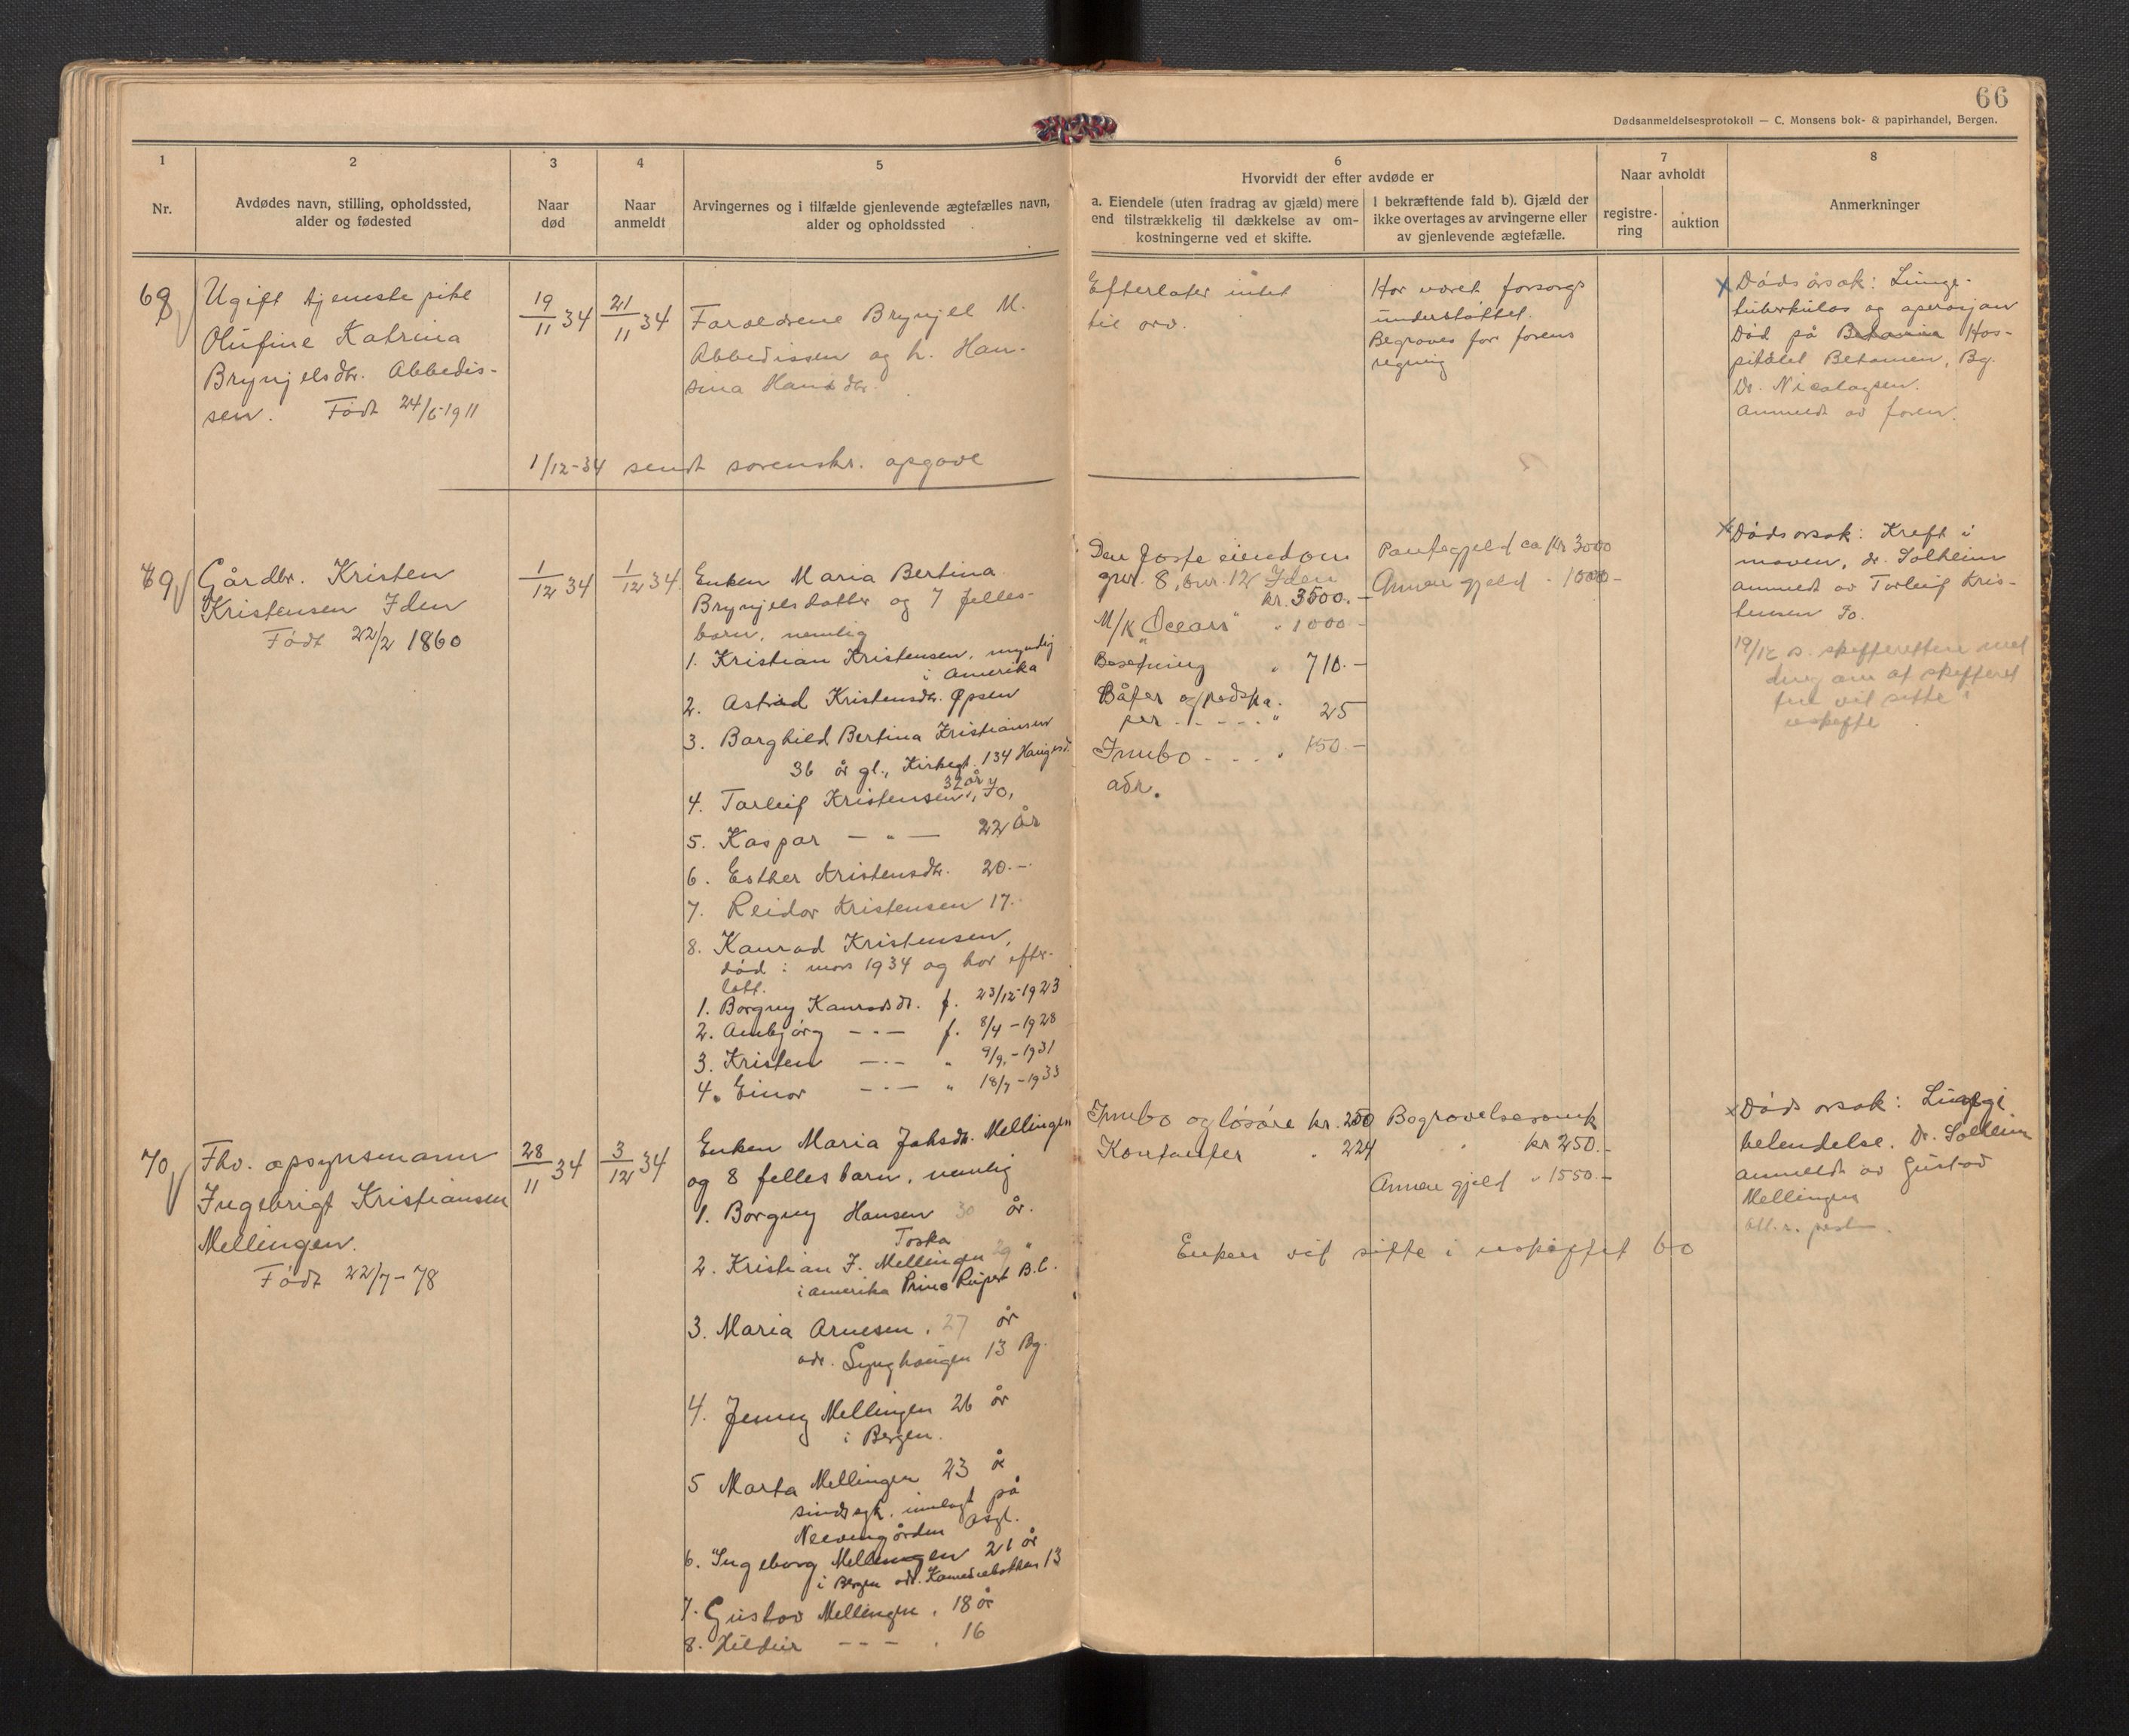 66
Dødsanmeldelsesprotokoll — C. Monsens bok- & papirhandel, Bergen.
1
Nr.
2
Avdødes navn, stilling, opholdssted,
alder og fødested
3
Naar
død
4
Naar
anmeldt
5
Arvingernes og i tilfælde gjenlevende ægtefælles navn,
alder og opholdssted
6
Hvorvidt der efter avdøde er
a. Eiendele (uten fradrag av gjæld) mere
end tilstrækkelig til dækkelse av om-
kostningerne ved et skifte.
I bekræftende fald b). Gjæld der
ikke overtages av arvingerne eller
av gjenlevende ægtefælle.
7
Naar avholdt
registre-
ring
auktion
8
Anmerkninger
68
Ugift tjenestepike
Olufine Katrina
Brynjelsdtr. Abbedis-
sen. Født 24/6-1911
19/11 34
21/11 34
Foreldrene Brynjel M.
Abbedissen og h. Han-
sina Hansdtr.
Efterlater intet
til arv.
Har været forsorgs
understøttet.
Begraves for forens
regning
x Dødsårsak: Lunge-
tuberkulos og operasjon
Død på Hos-
pitalet Betanien, Bg.
Dr. Nicolaysen.
Anmeldt av foren.
1/12-34 sendt sorenskr. opgave
69
Gårdbr. Kristen
Kristensen Iden
Født 22/2 1860
1/12 34
1/12 34
Enken Maria Bertina
Brynjelsdatter og 7 felles-
barn, nemlig
1. Kristian Kristensen, myndig
i Amerika
2. Astrid Kristensdtr. Opsen
3. Borghild Bertina Kristiansen
36 år gl., Kirkegt. 134 Haugesd.
4. Torleif Kristensen, 32 år, Io,
5. Kaspar — " — 22 år
6. Esther Kristensdtr. 20.-
7. Reidar Kristensen 17.
8. Konrad Kristensen,
død i mars 1934 og har efter-
latt.
1. Borgny Konradsdt. f. 23/12-1923
2. Annbjørg — " — f. 8/4-1928
3. Kristen — " — " 9/9.-1931
4. Einar — " — " 18/7-1933
Den faste eiendom
gnr. 8, bnr. 12 Iden
kr. 3500.-
M/K "Ocean" " 1000 -
Besetning " 710.-
Båter og redska-
per - - - - " 25
Innbo - - - " 150.-
adr.
Pantegjeld ca kr 3000
Annen gjeld " 1000-
x Dødsorsak: Kreft i
maven, dr. Solheim
anmeldt av Torleif Kris-
tensen Io.
19/12 s. skifteretten med
70
Fhv. opsynsmann
Ingebrigt Kristiansen
Mellingen.
Født 22/7-78
28/11 34
3/12 34
Enken Maria Johsdr. Mellingen
og 8 felles barn, nemlig
1. Borgny Hansen 30 år.
Toska
2. Kristian I. Mellingen 29 "
i Amerika Prince Rupert B.C.
3. Maria Arnesen. 27 år
adr. Lynghaugen 13 Bg.
4. Jenny Mellingen 26 år
i Bergen.
5 Marta Mellingen 23 år
sindssyk. innlagt på
Neevengården Asyl.
6. Ingeborg Mellingen 21 år
i Bergen adr. Komediebakken 13
7. Gustav Mellingen. 18 år
8. - - - . 16
Innbo og løsøre kr. 250
Kontanter " 224
Begravelsesomk
" kr 250.-
Annen gjeld " 1550.-
Enken vil sitte i uskiftet bo
x Dødsorsak: Lunge
betendelse. Dr. Solheim
anmeldt av Gustav
Mellingen